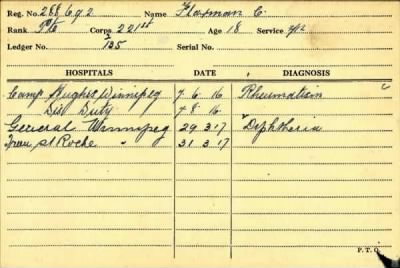 Reg. No. 288692 Name Flaxman C.
Rank Pte Corps 221st Age 18 Service
Ledger No. 135 Serial No.
HOSPITALS DATE DIAGNOSIS
Camp Hughes Winnipeg 7 6 16 Rheumatism
Dis Duty 7 8 16
General Winnipeg 29 3 17 Diphtheria
St Roche " 31 3 17
P. T. O.